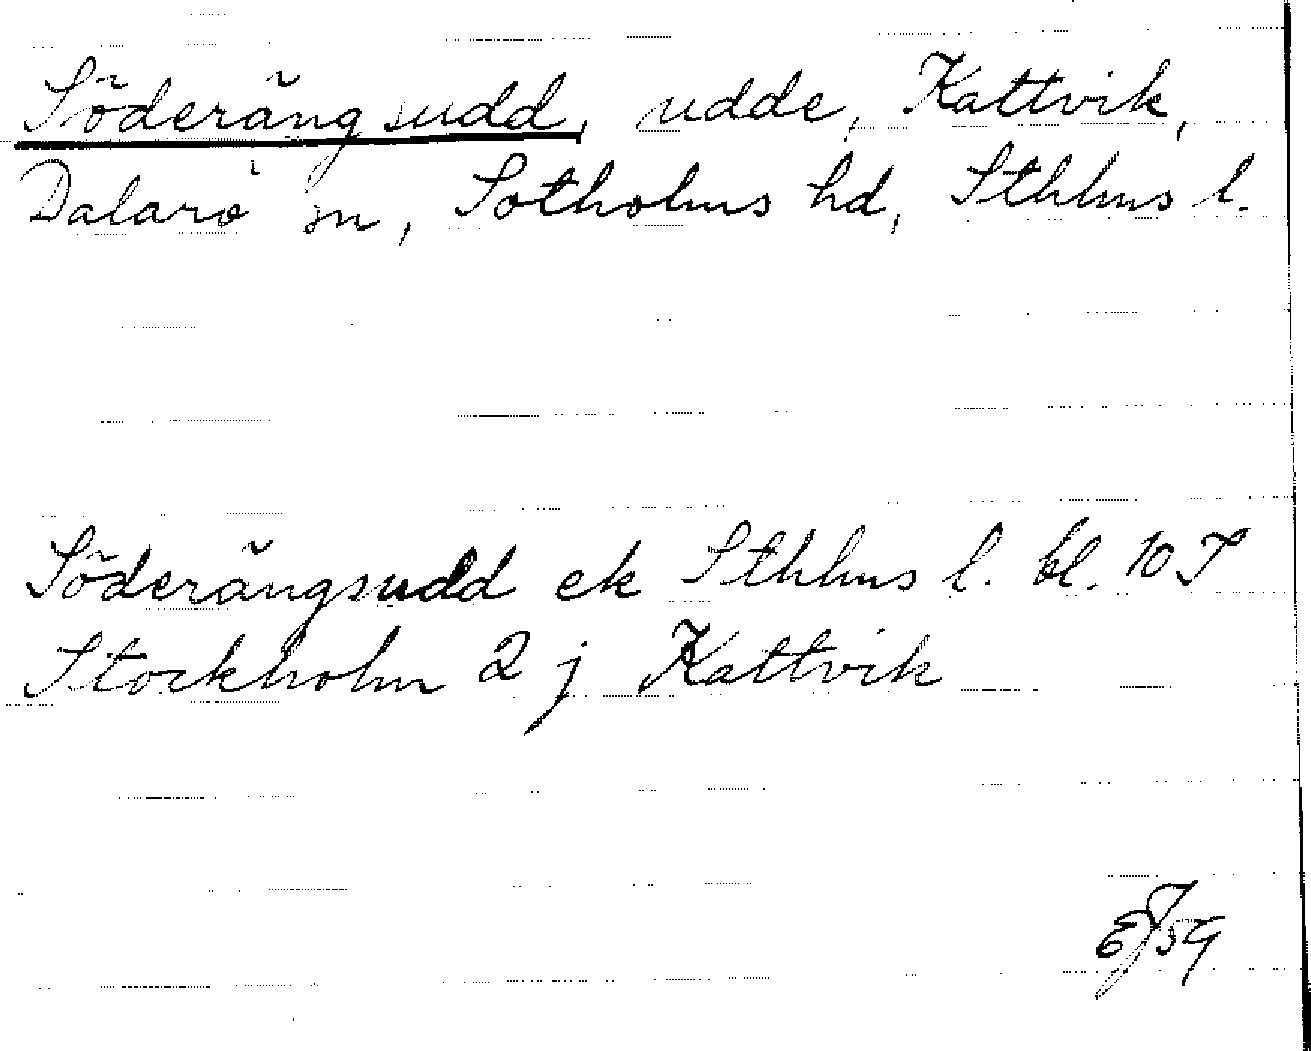 Söderängsudd, udde, Kattvik,
Dalarö sn, Sotholms hd, Sthlms l.
Söderängsudd ek Sthlms l. bl. 10 J
Stockholm 2 j Kattvik